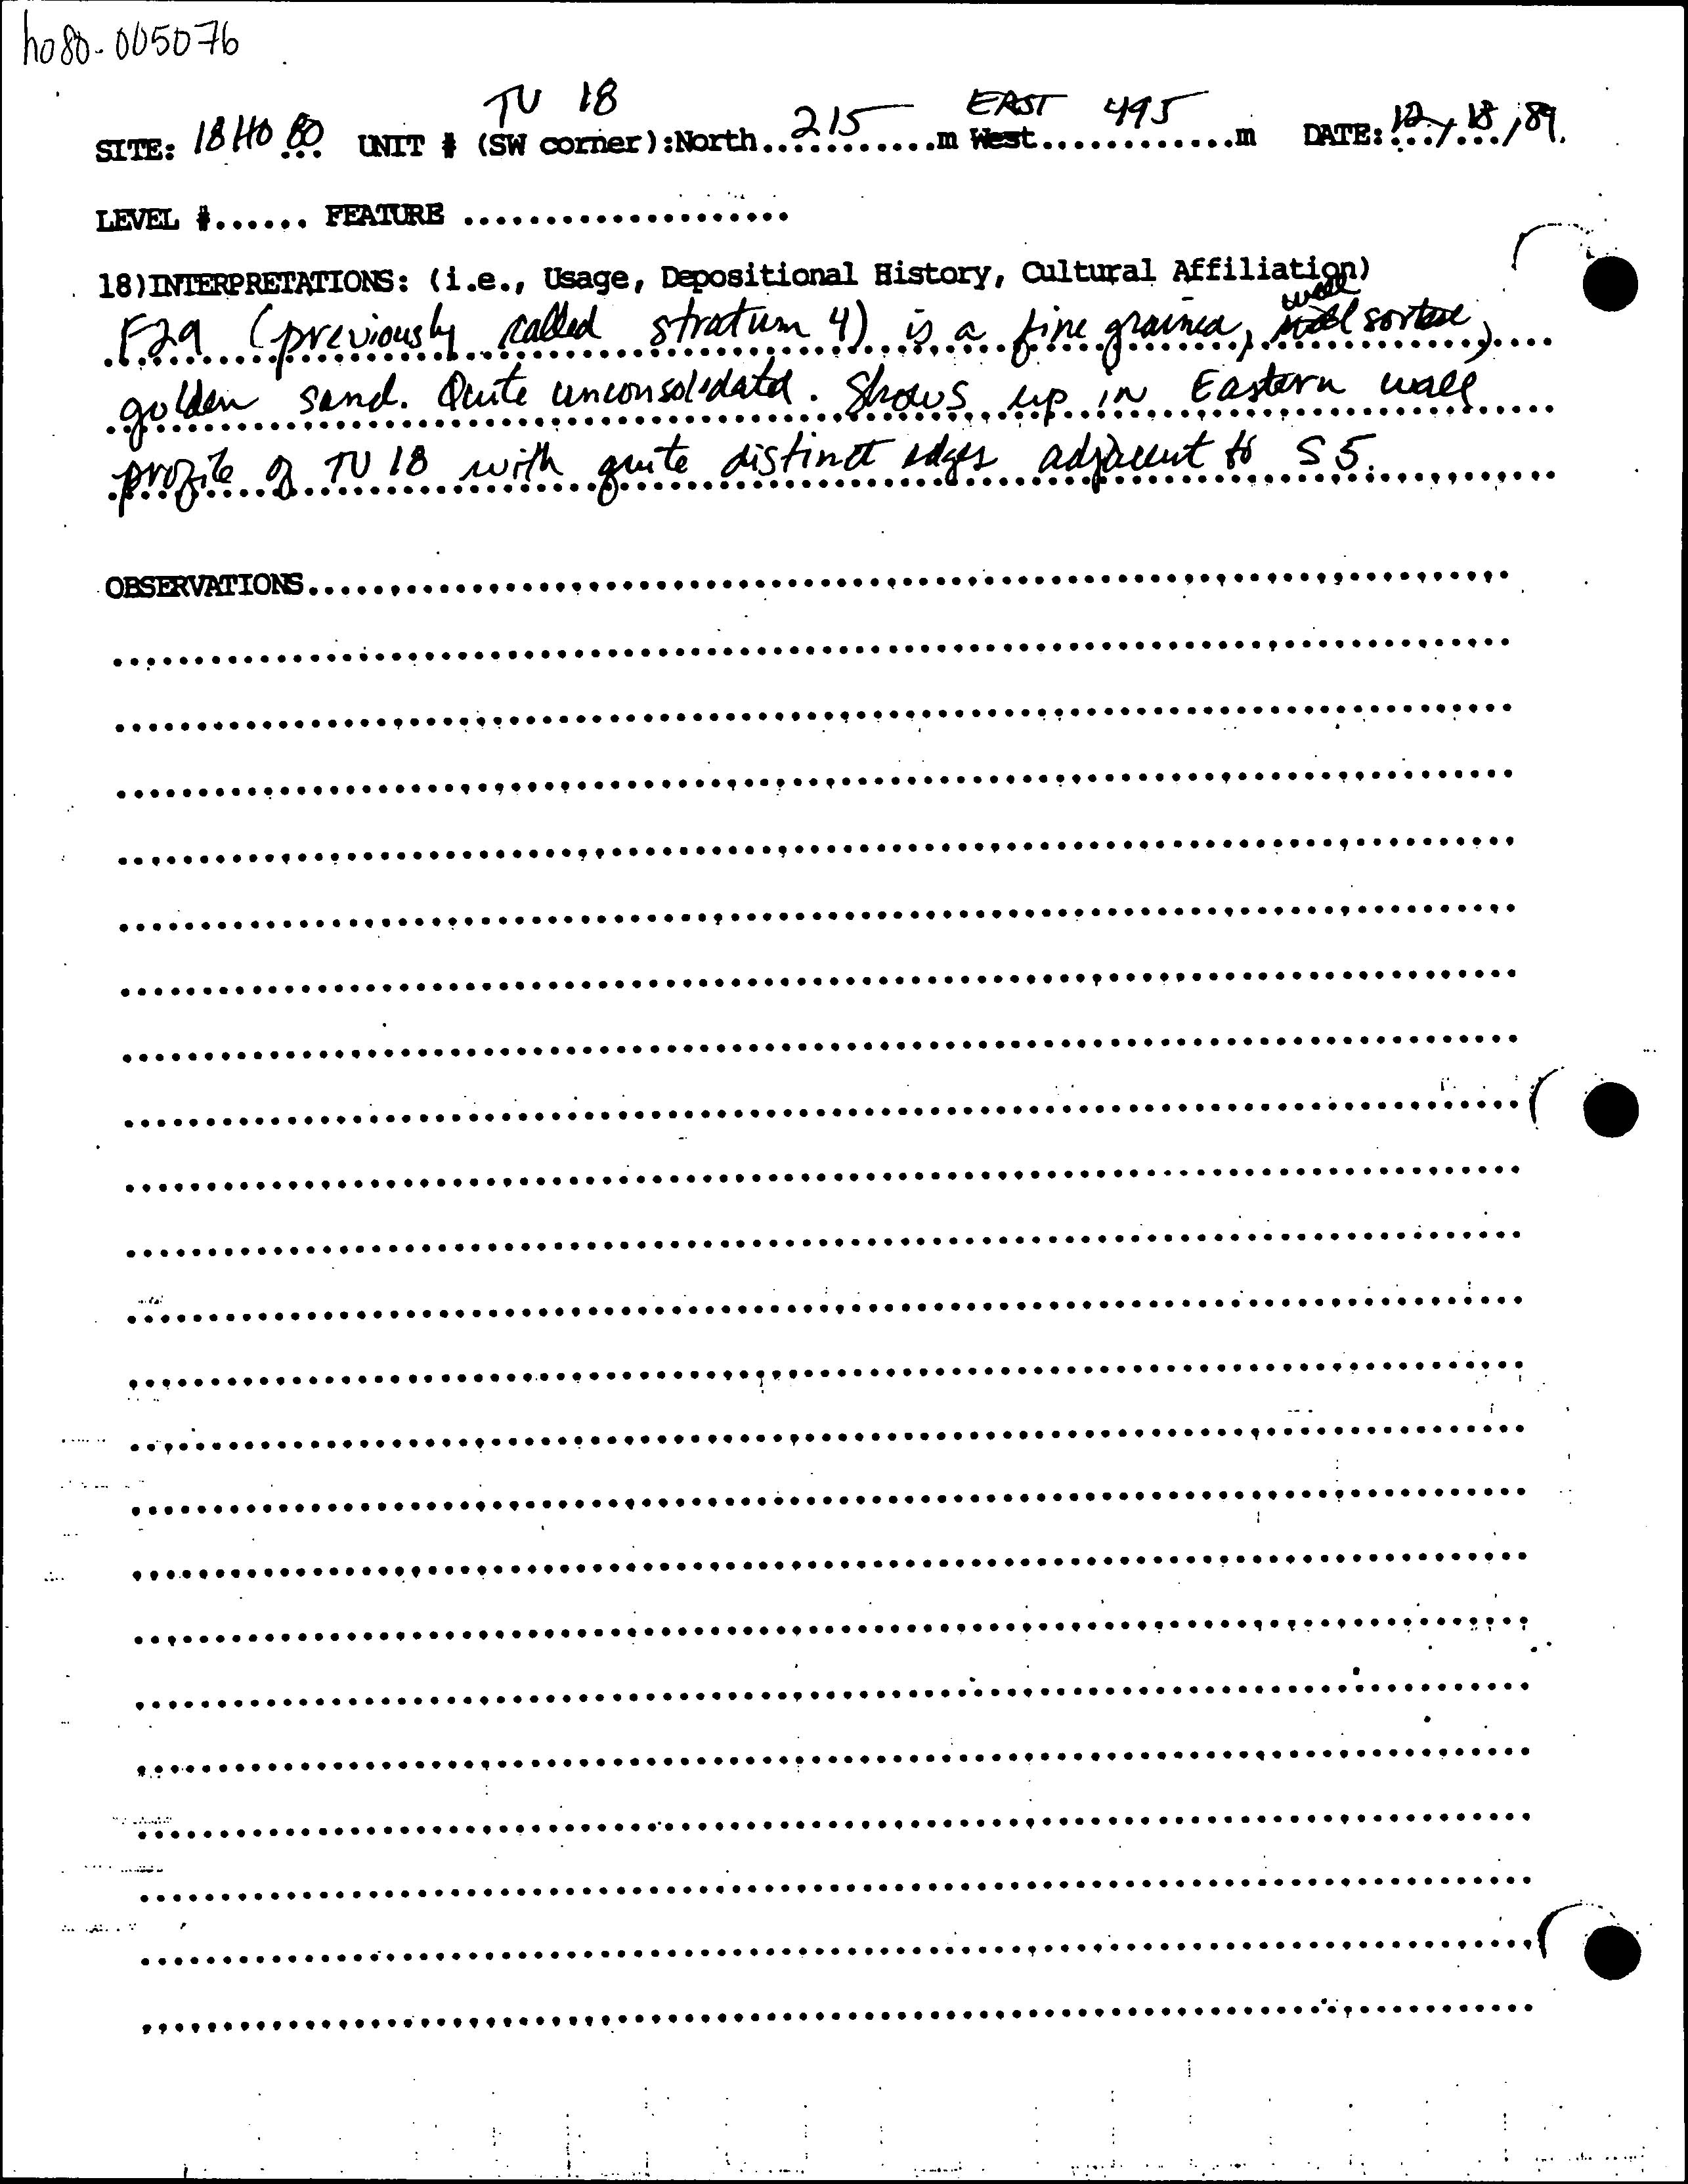 ho80-005076
TU 18
SITE: 18HO 80 UNIT # (SW corner):North..215..m West EAST 495 m DATE: 12/18/89.
LEVEL #...... FEATURE ....................
18)INTERPRETATIONS: (i.e., Usage, Depositional History, Cultural Affiliation)
F29 (previously called stratum 4) is a fine grained, well sorted,
golden sand. Quite unconsolidated. Shows up in Eastern wall
profile of TU 18 with quite distinct edges adjacent to S5.
OBSERVATIONS